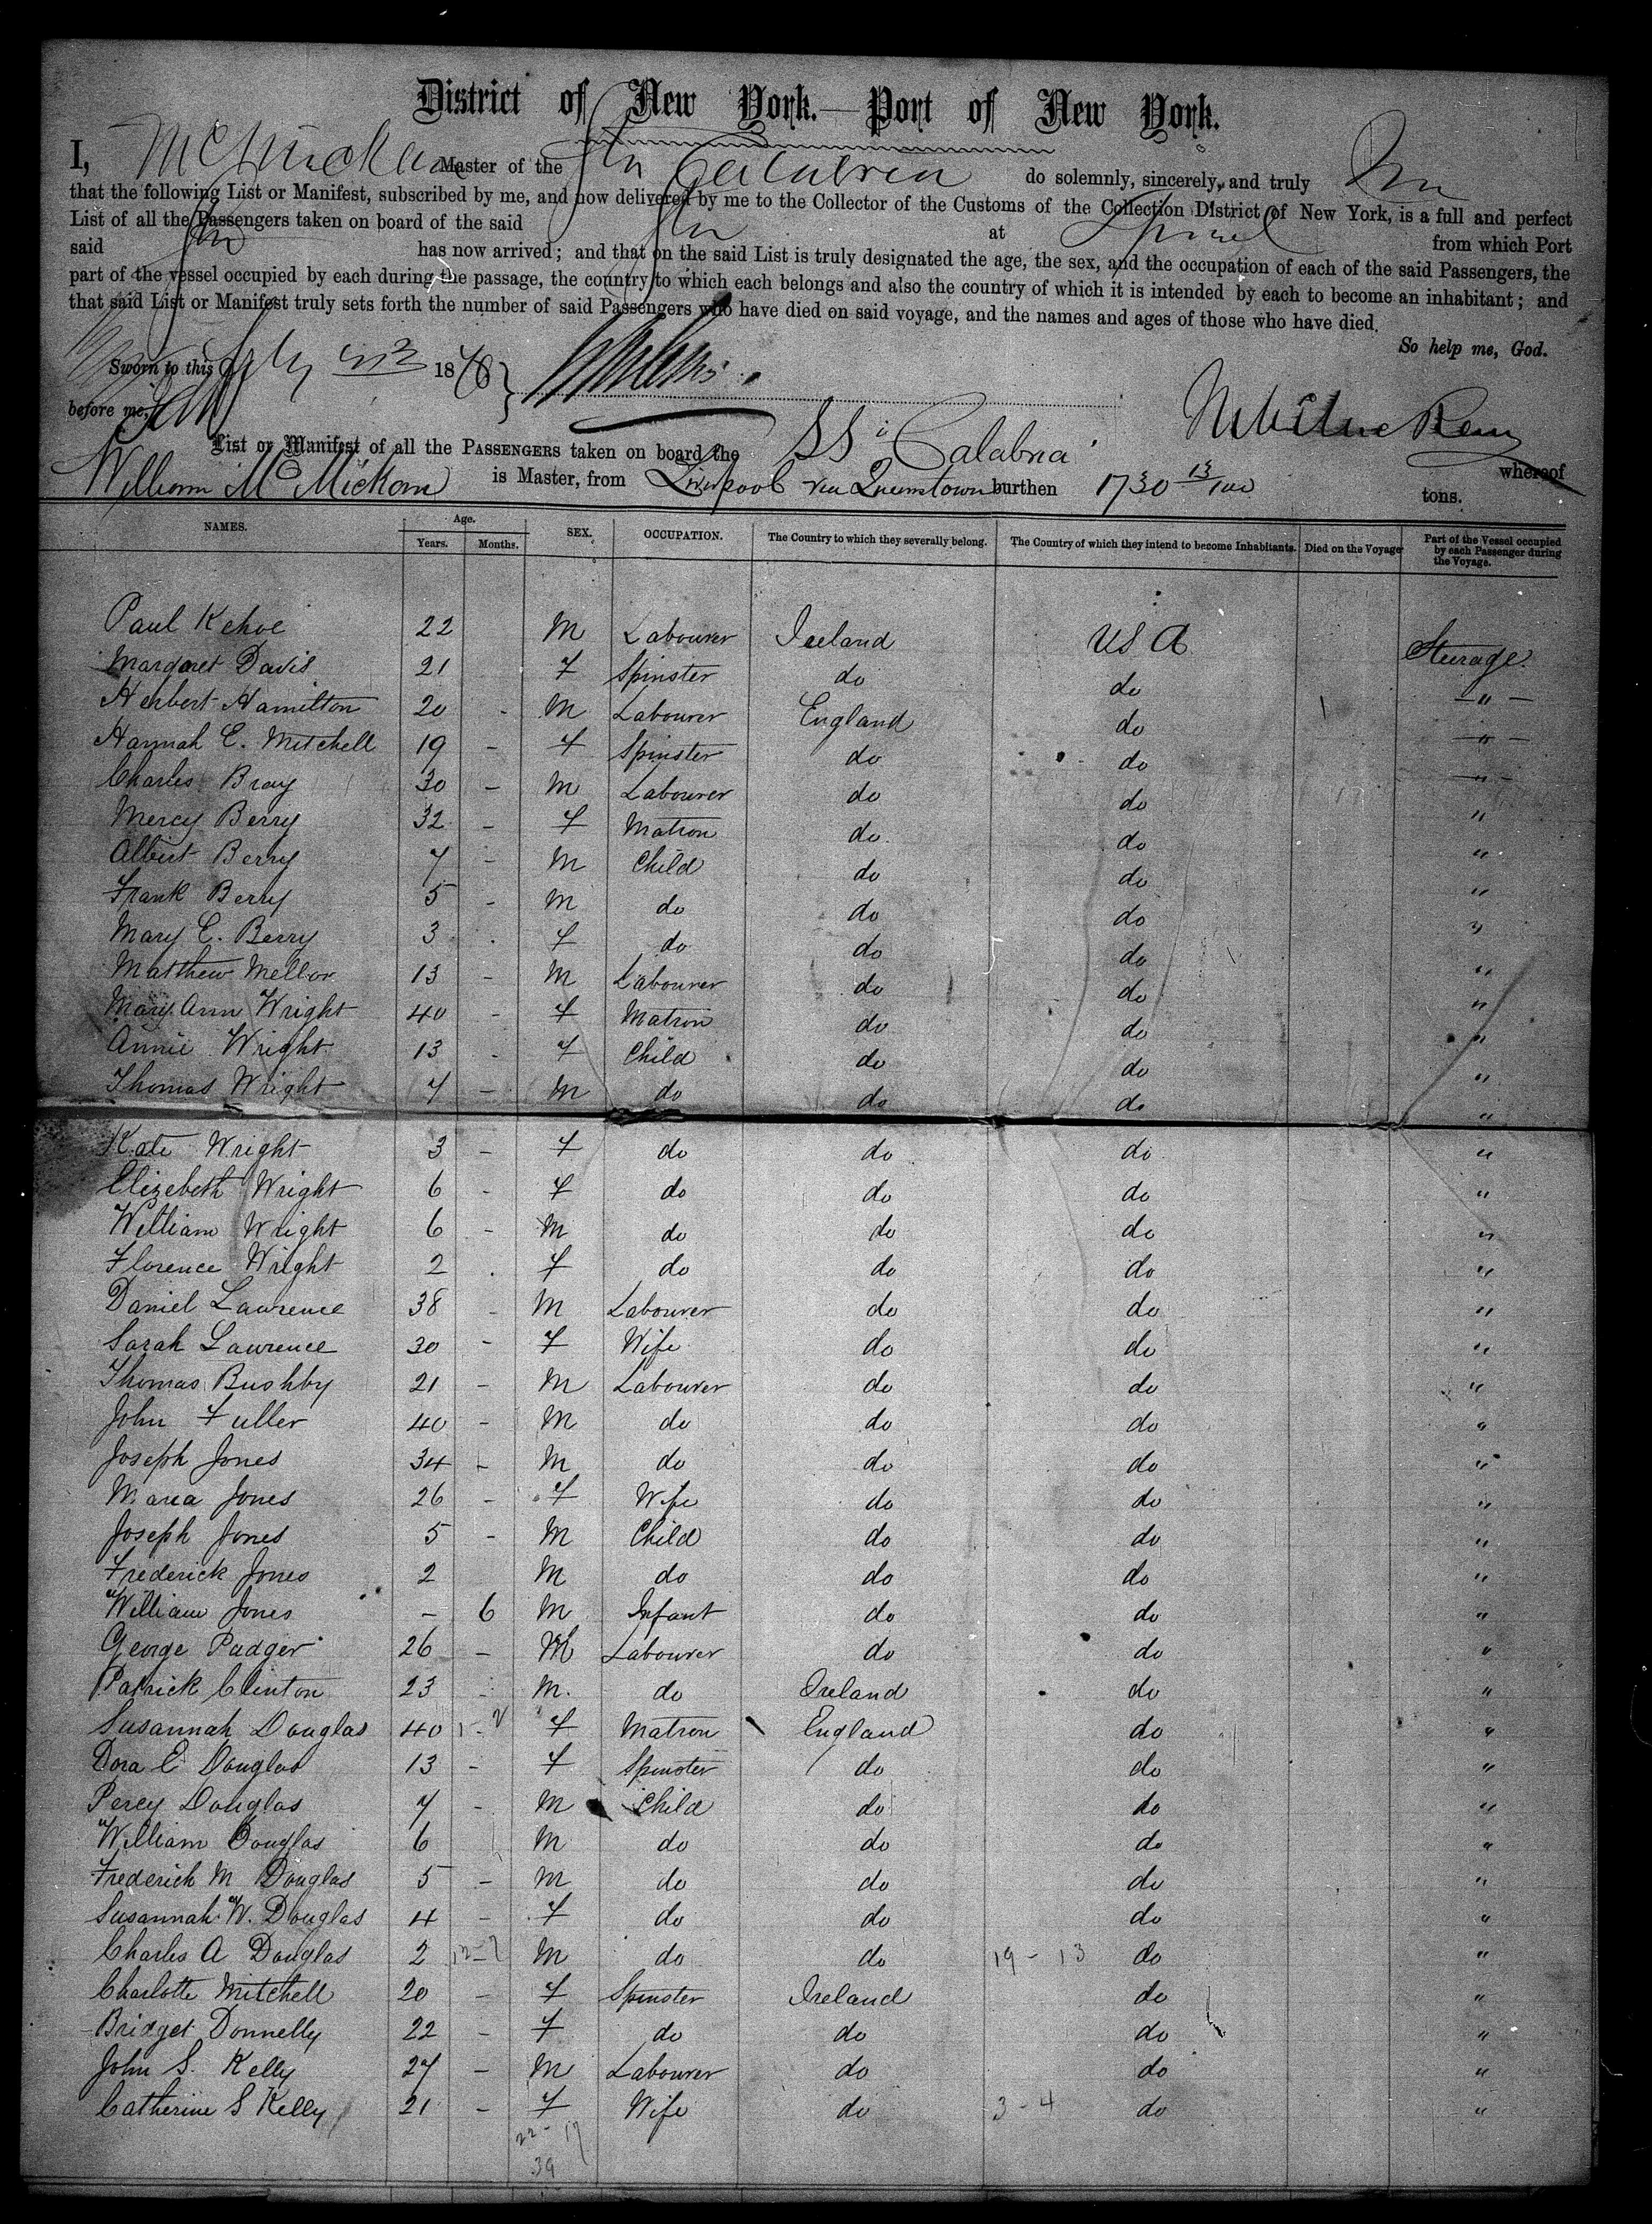 District of New York.—Port of New York.
I, McMickan Master of the Str Calabria do solemnly, sincerely, and truly
that the following List or Manifest, subscribed by me, and now delivered by me to the Collector of the Customs of the Collection District of New York, is a full and perfect
List of all the Passengers taken on board of the said Str at Lpool from which Port
said Str has now arrived; and that on the said List is truly designated the age, the sex, and the occupation of each of the said Passengers, the
part of the vessel occupied by each during the passage, the country to which each belongs and also the country of which it is intended by each to become an inhabitant; and
that said List or Manifest truly sets forth the number of said Passengers who have died on said voyage, and the names and ages of those who have died.
So help me, God.
Sworn to this July 18
before me,
List or Manifest of all the PASSENGERS taken on board the SS Calabria whereof
William McMickan is Master, from Liverpool via Queenstown burthen 1730 13/100 tons.
NAMES. Age. Years. Months. SEX. OCCUPATION. The Country to which they severally belong. The Country of which they intend to become Inhabitants. Died on the Voyage Part of the Vessel occupied by each Passenger during the Voyage.
Paul Kehoe 22 M Labourer Ireland USA Steerage
Margaret Davis 21 F Spinster do do "
Herbert Hamilton 20 - M Labourer England do "
Hannah E. Mitchell 19 - F Spinster do do "
Charles Bray 30 - M Labourer do do "
Mercy Berry 32 - F Matron do do "
Albert Berry 7 - M Child do do "
Frank Berry 5 - M do do do "
Mary E. Berry 3 - F do do do "
Matthew Mellor 13 - M Labourer do do "
Mary Ann Wright 40 - F Matron do do "
Annie Wright 13 - F Child do do "
Thomas Wright 7 - M do do do "
Kate Wright 3 - F do do do "
Elizebeth Wright 6 - F do do do "
William Wright 6 - M do do do "
Florence Wright 2 - F do do do "
Daniel Lawrence 38 - M Labourer do do "
Sarah Lawrence 30 - F Wife do do "
Thomas Bushby 21 - M Labourer do do "
John Fuller 40 - M do do do "
Joseph Jones 34 - M do do do "
Maria Jones 26 - F Wife do do "
Joseph Jones 5 - M Child do do "
Frederick Jones 2 M do do do "
William Jones - 6 M Infant do do "
George Padger 26 - M Labourer do do "
Patrick Clinton 23 - M. do Ireland do "
Susannah Douglas 40 - F Matron England do "
Dora E Douglas 13 - F Spinster do do "
Percy Douglas 7 - M Child do do "
William Douglas 6 M do do do "
Frederick M Douglas 5 - M do do do "
Susannah W. Douglas 4 - F do do do "
Charles A Douglas 2 - M do do 19 - 13 do "
Charlotte Mitchell 20 - F Spinster Ireland do "
Bridget Donnelly 22 - F do do do "
John S. Kelly 27 - M Labourer do do "
Catherine S Kelly 21 - F Wife do 3 - 4 do "
22 - 17
39